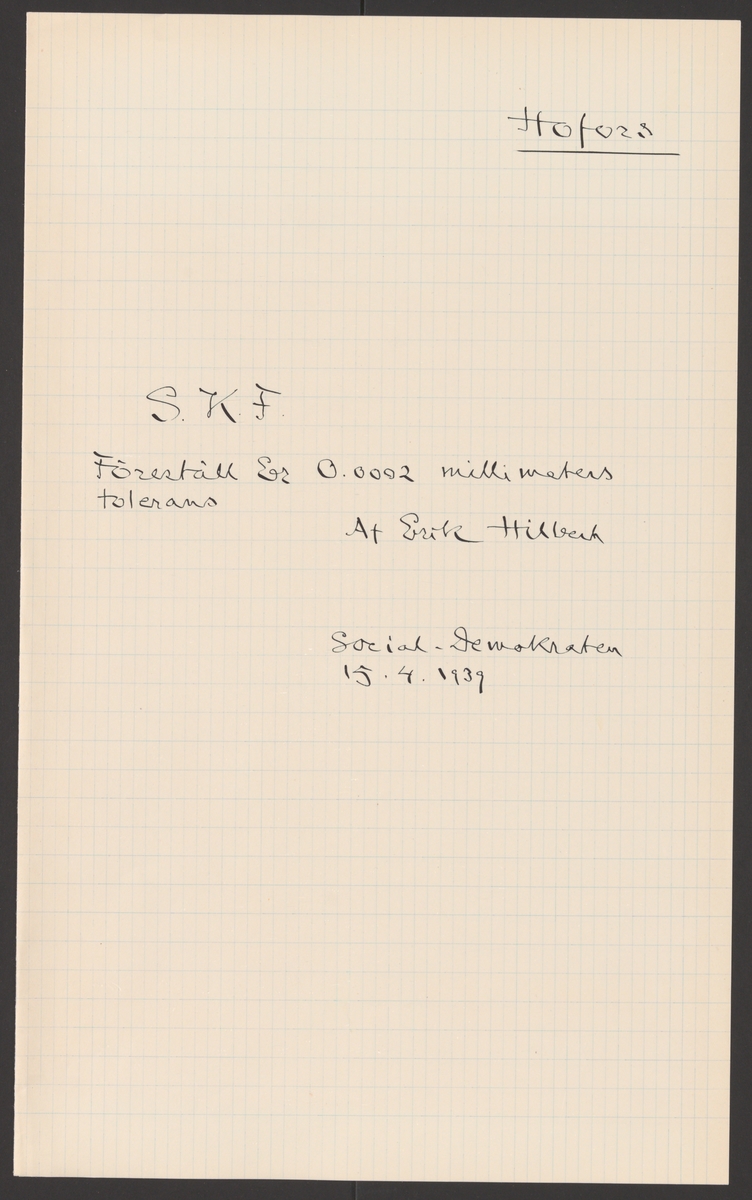 Hofors
S. K. F.
Föreställ Er 0.0002 millimeters
tolerans
Af Erik Hilbeck
Social-Demokraten
15.4.1939